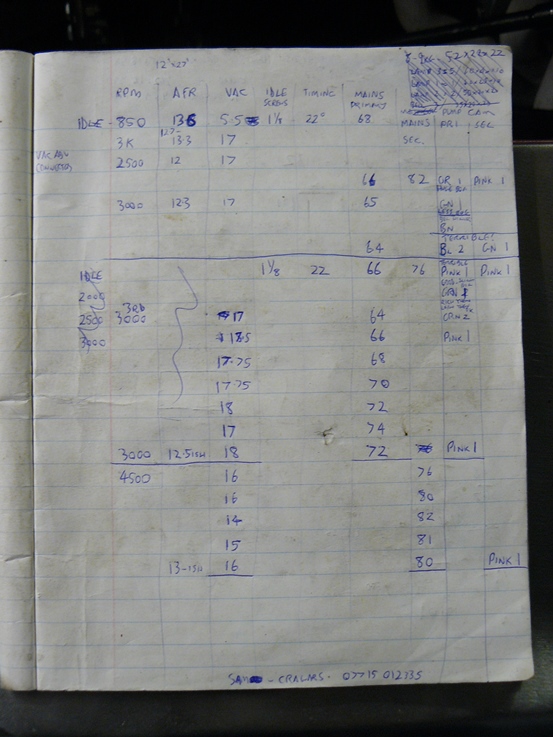 12"x27"
RPM AFR VAC IDLE SCREWS TIMING MAINS PRIMARY MAINS SEC. PUMP CAM PRI SEC
IDLE - 850 13.6 5.5 1 1/8 22° 68
3K 13.3 17
VAC ADV
2500 12 17
66 82 OR 1 PINK 1
3000 12.3 17 65 GN 1
BN
TERRIBLE?
64 BL 2 GN 1
IDLE 1 1/8 22 66 76 PINK 1 PINK 1
2000
2500 3000 17 64 GRN 2
3000 18.5 66 PINK 1
17.75 68
17.75 70
18 72
17 74
3000 12.5ISH 18 72 PINK 1
4500 16 76
16 80
14 82
15 81
13-ISH 16 80 PINK 1
- CRALWRS - 07715 012735